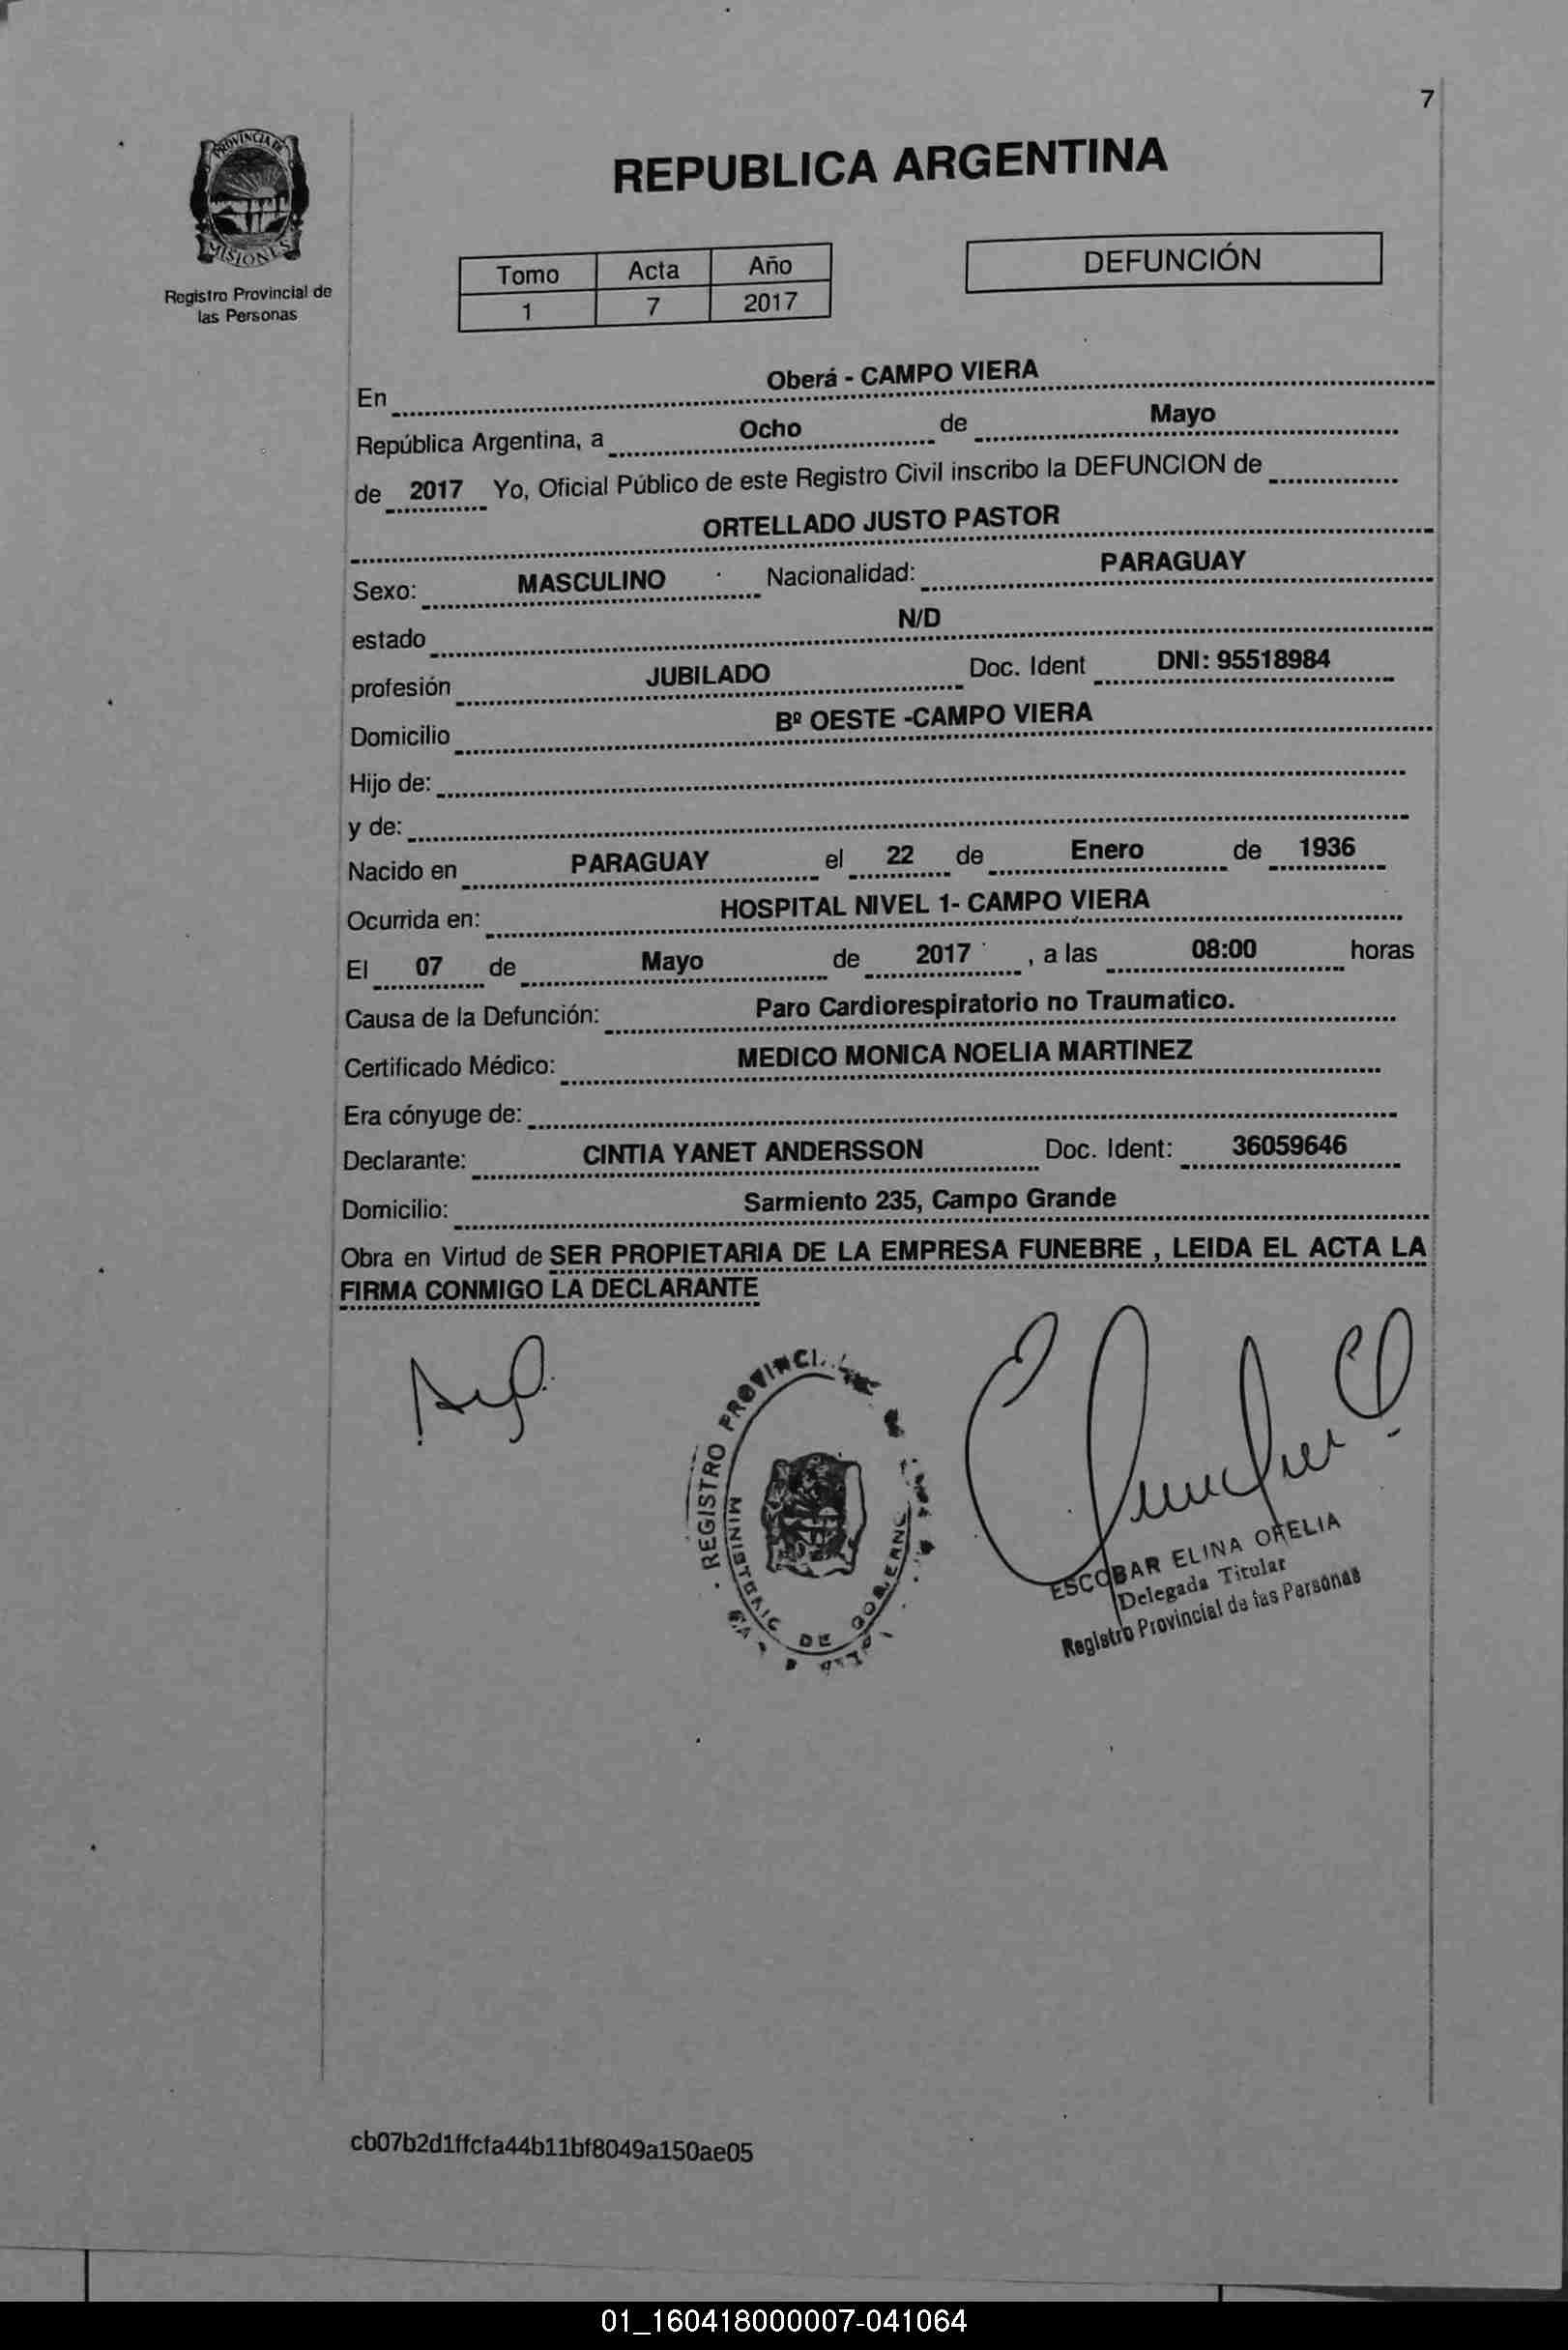 7
PROVINCIA DE
MISIONES
Registro Provincial de
las Personas
REPUBLICA ARGENTINA
Tomo Acta Año
1 7 2017
DEFUNCIÓN
En Oberá - CAMPO VIERA
República Argentina, a Ocho de Mayo
de 2017 Yo, Oficial Público de este Registro Civil inscribo la DEFUNCION de
ORTELLADO JUSTO PASTOR
Sexo: MASCULINO Nacionalidad: PARAGUAY
estado N/D
profesión JUBILADO Doc. Ident DNI: 95518984
Domicilio Bº OESTE -CAMPO VIERA
Hijo de:
y de:
Nacido en PARAGUAY el 22 de Enero de 1936
Ocurrida en: HOSPITAL NIVEL 1- CAMPO VIERA
El 07 de Mayo de 2017 , a las 08:00 horas
Causa de la Defunción: Paro Cardiorespiratorio no Traumatico.
Certificado Médico: MEDICO MONICA NOELIA MARTINEZ
Era cónyuge de:
Declarante: CINTIA YANET ANDERSSON Doc. Ident: 36059646
Domicilio: Sarmiento 235, Campo Grande
Obra en Virtud de SER PROPIETARIA DE LA EMPRESA FUNEBRE , LEIDA EL ACTA LA
FIRMA CONMIGO LA DECLARANTE
REGISTRO
MINISTERIO DE
ESCOBAR ELINA OFELIA
Delegada Titular
Registro Provincial de las Personas
cb07b2d1ffcfa44b11bf8049a150ae05
01_160418000007-041064